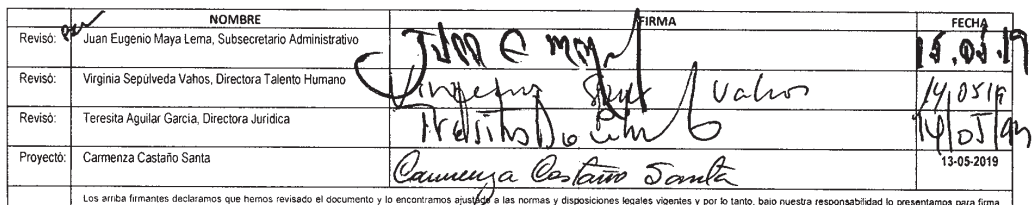 NOMBRE FIRMA FECHA
Revisó: Juan Eugenio Maya Lema, Subsecretario Administrativo 15.05.19
Revisó: Virginia Sepúlveda Vahos, Directora Talento Humano Vahos 14/05/19
Revisó: Teresita Aguilar Garcia, Directora Jurídica 14/05/19
Proyectó: Carmenza Castaño Santa Carmenza Castaño Santa 13-05-2019
Los arriba firmantes declaramos que hemos revisado el documento y lo encontramos ajustado a las normas y disposiciones legales vigentes y por lo tanto, bajo nuestra responsabilidad lo presentamos para firma